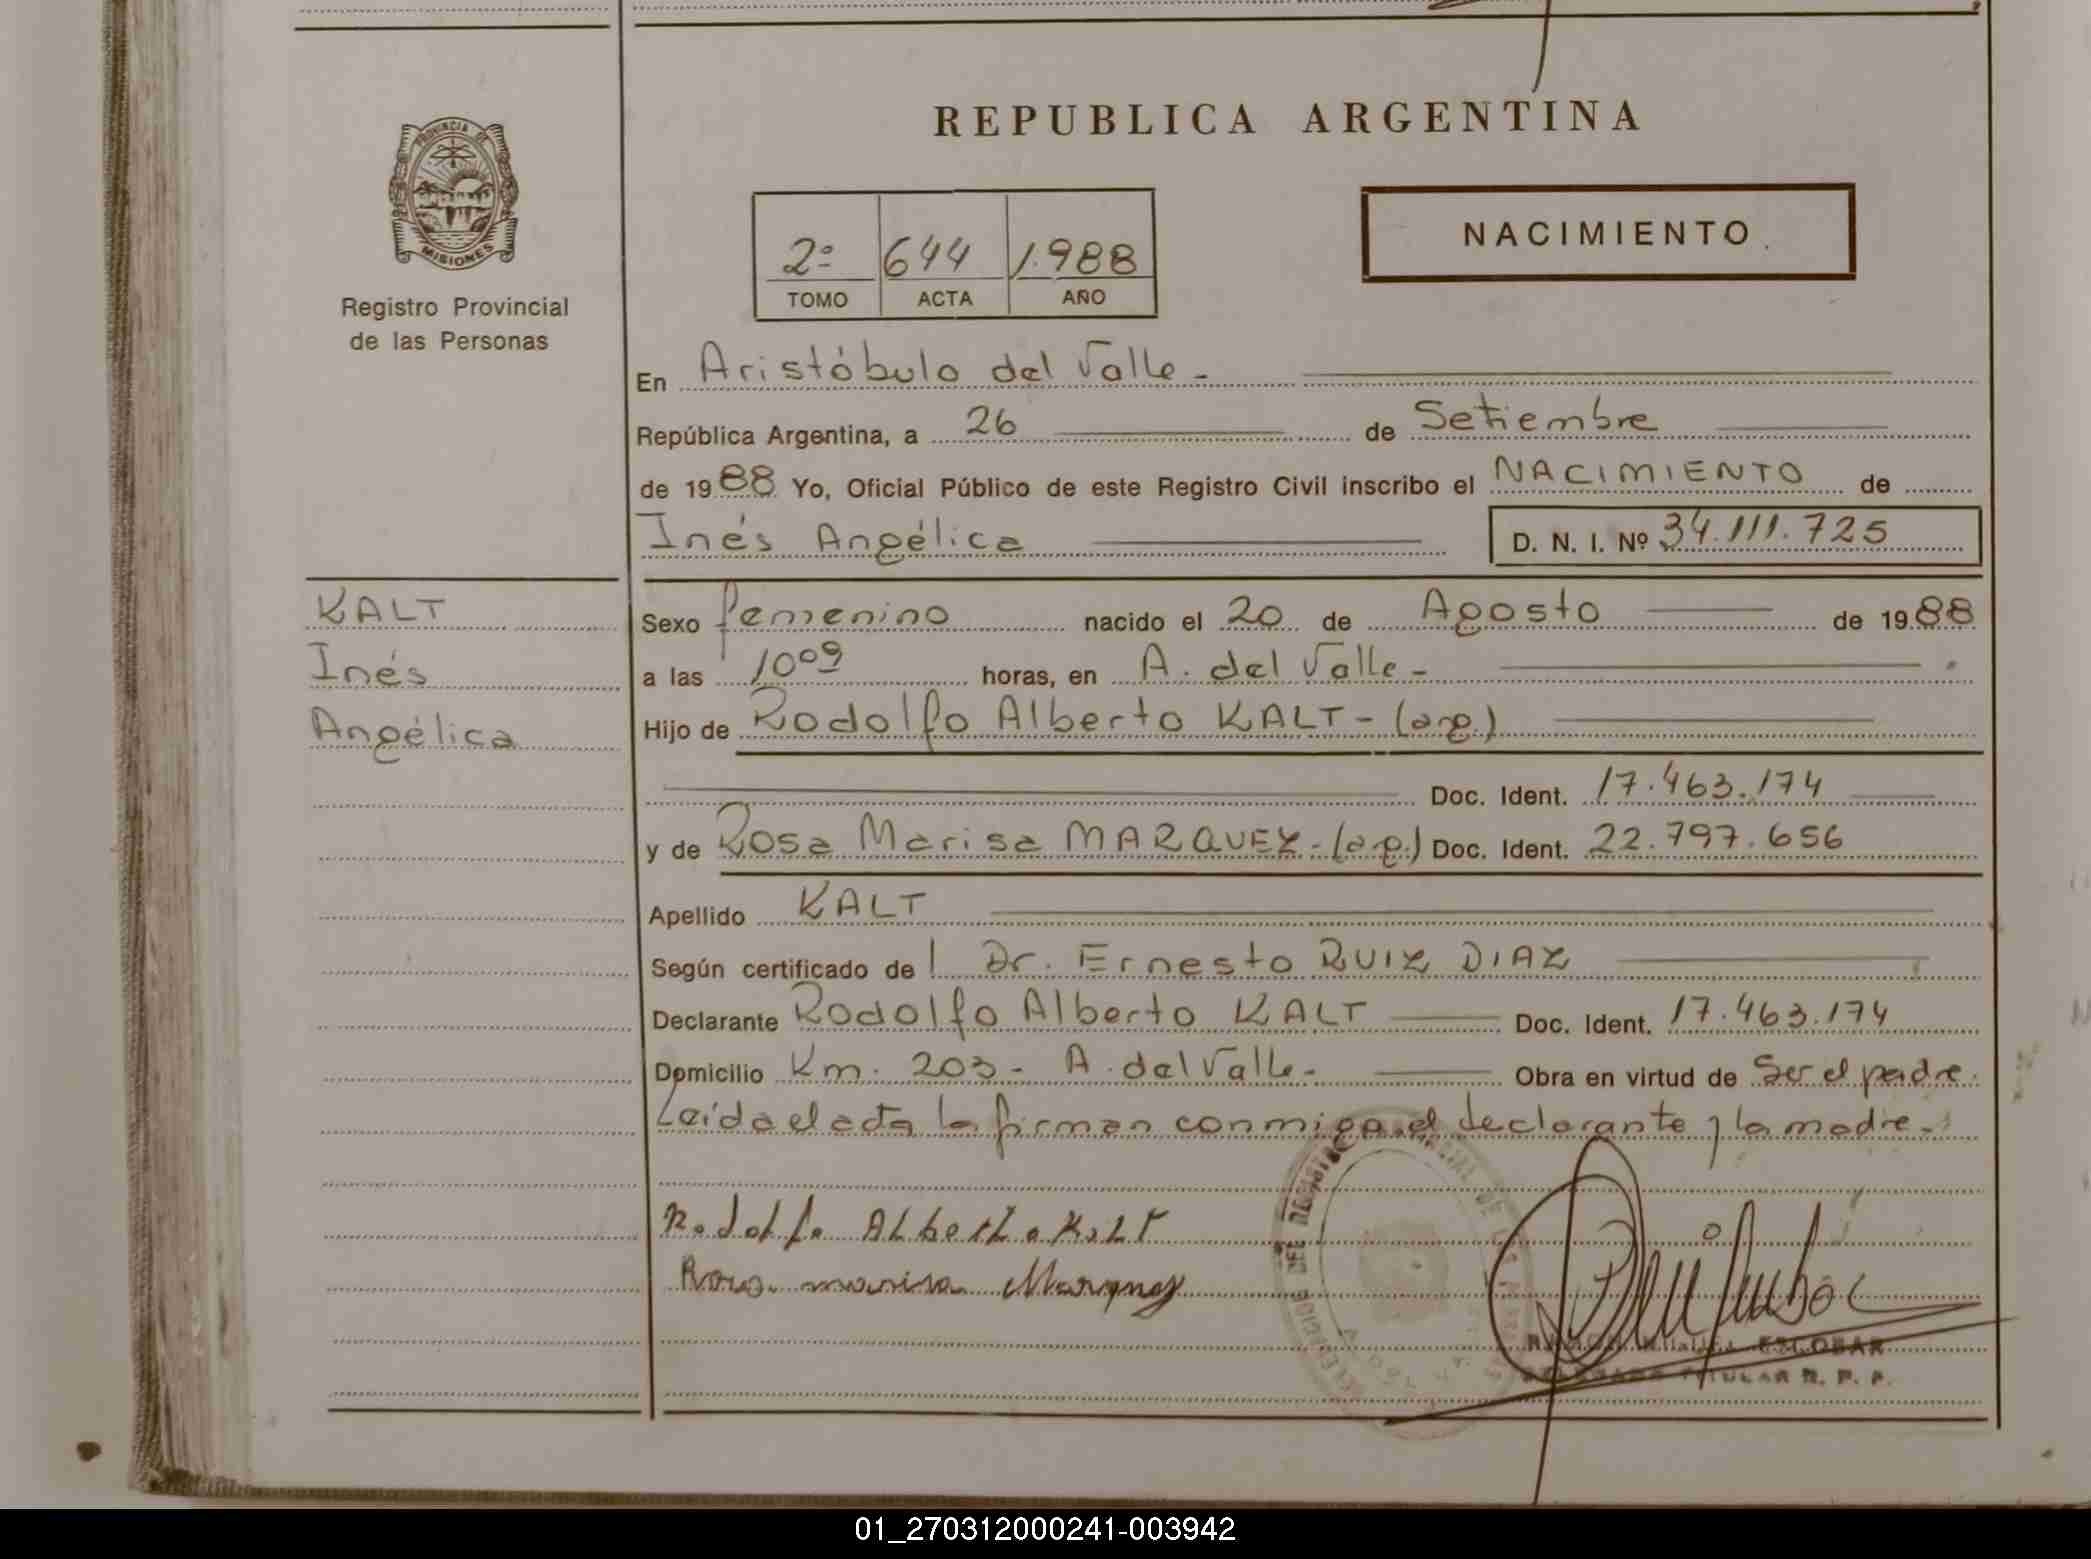 REPUBLICA ARGENTINA
PROVINCIA DE
MISIONES
Registro Provincial
de las Personas
2º 644 1.988
TOMO ACTA AÑO
NACIMIENTO
En Aristóbulo del Valle -
República Argentina, a 26 de Setiembre
de 1988 Yo, Oficial Público de este Registro Civil inscribo el NACIMIENTO de
Inés Angélica D. N. I. Nº 34.111.725
KALT
Inés
Angélica
Sexo femenino nacido el 20 de Agosto de 1988
a las 10º⁹ horas, en A. del Valle -
Hijo de Rodolfo Alberto KALT - (arg.)
Doc. Ident. 17.463.174
y de Rosa Marisa MARQUEZ - (arg.) Doc. Ident. 22.797.656
Apellido KALT
Según certificado de l Dr. Ernesto RUIZ DIAZ
Declarante Rodolfo Alberto KALT Doc. Ident. 17.463.174
Domicilio Km. 203 - A. del Valle - Obra en virtud de Ser el padre.
Leída el acta la firman conmigo el declarante y la madre.-
Rodolfo Alberto Kalt
Rosa marisa Marquez
ESCOBAR
TITULAR R. P. P.
01_270312000241-003942